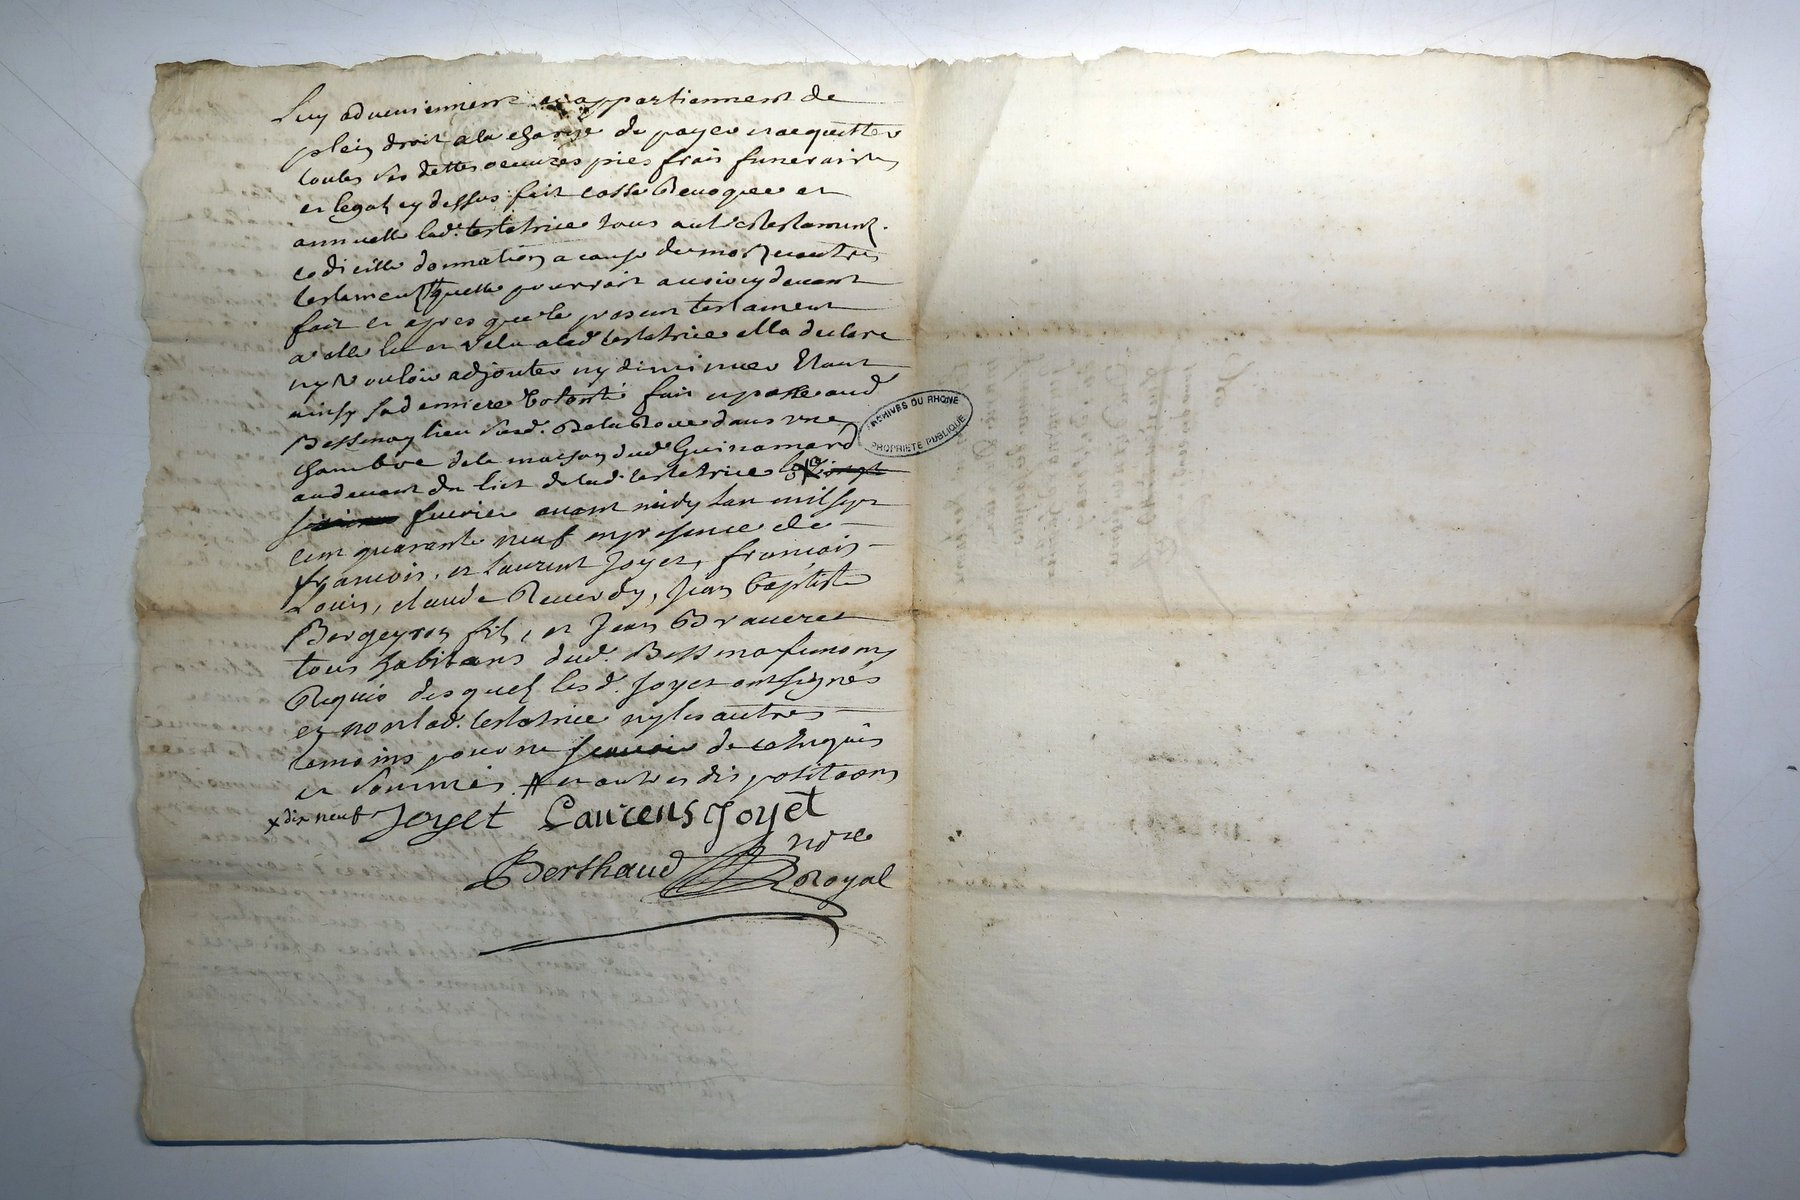 luy adveniennent et appartiennent de
plein droit a la charge de payer et acquitter
toutes ses dettes oeuvres pies frais funeraires
et legat cy dessus fait casse Revoque et
annulle lad. testatrice tous autres testament
codicille donnation a cause de mort
testament # quelle pourroit avoir cy devant
fait et apres que le present testament
a esté lu et relu a lad. testatrice elle a declaré
ny vouloir adjouter ny diminuer Etant
ainsy sa derniere volonté fait et passé aud
Bessenay lieu de la Roue dans une
chambre de la maison dud Guinamard
au devant du lict de lad. testatrice le x
fevrier avant midy lan mil sept
cent quarante neuf en presence de
françois, et laurent Joyet, françois
Louis, claude Reverdy, Jean baptiste
Bergeyron fils, et Jean
tous habitans dud. Bessenay
Requis desquels lesd. Joyet ont signés
et non lad. testatrice ny les autres
temoins pour ne scavoir de ce Enquis
et sommés. # et autres dispositions
x dix neuf Joyet Laurens Joyet
Berthaud nore
Royal
ARCHIVES DU RHONE
PROPRIETE PUBLIQUE